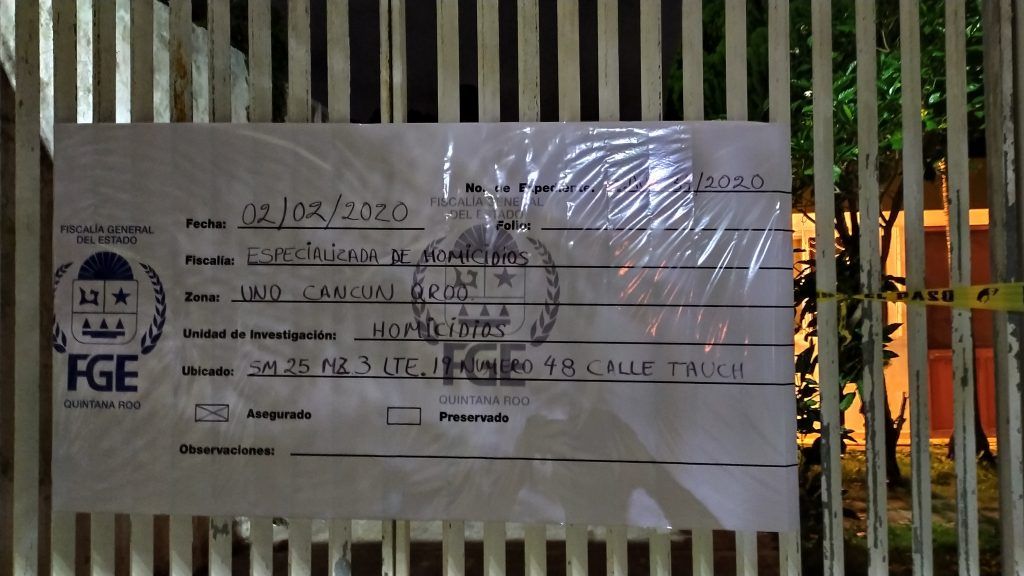 No. de Expediente: /2020
Fecha: 02/02/2020
Folio:
FISCALÍA GENERAL
DEL ESTADO
FISCALÍA GENERAL
DEL ESTADO
Fiscalía: ESPECIALIZADA DE HOMICIDIOS
Zona: UNO CANCUN QROO
Unidad de Investigación: HOMICIDIOS
Ubicado: SM 25 MZ.3 LTE.19 NUMERO 48 CALLE TAUCH
FGE
QUINTANA ROO
FGE
QUINTANA ROO
Asegurado
Preservado
Observaciones: